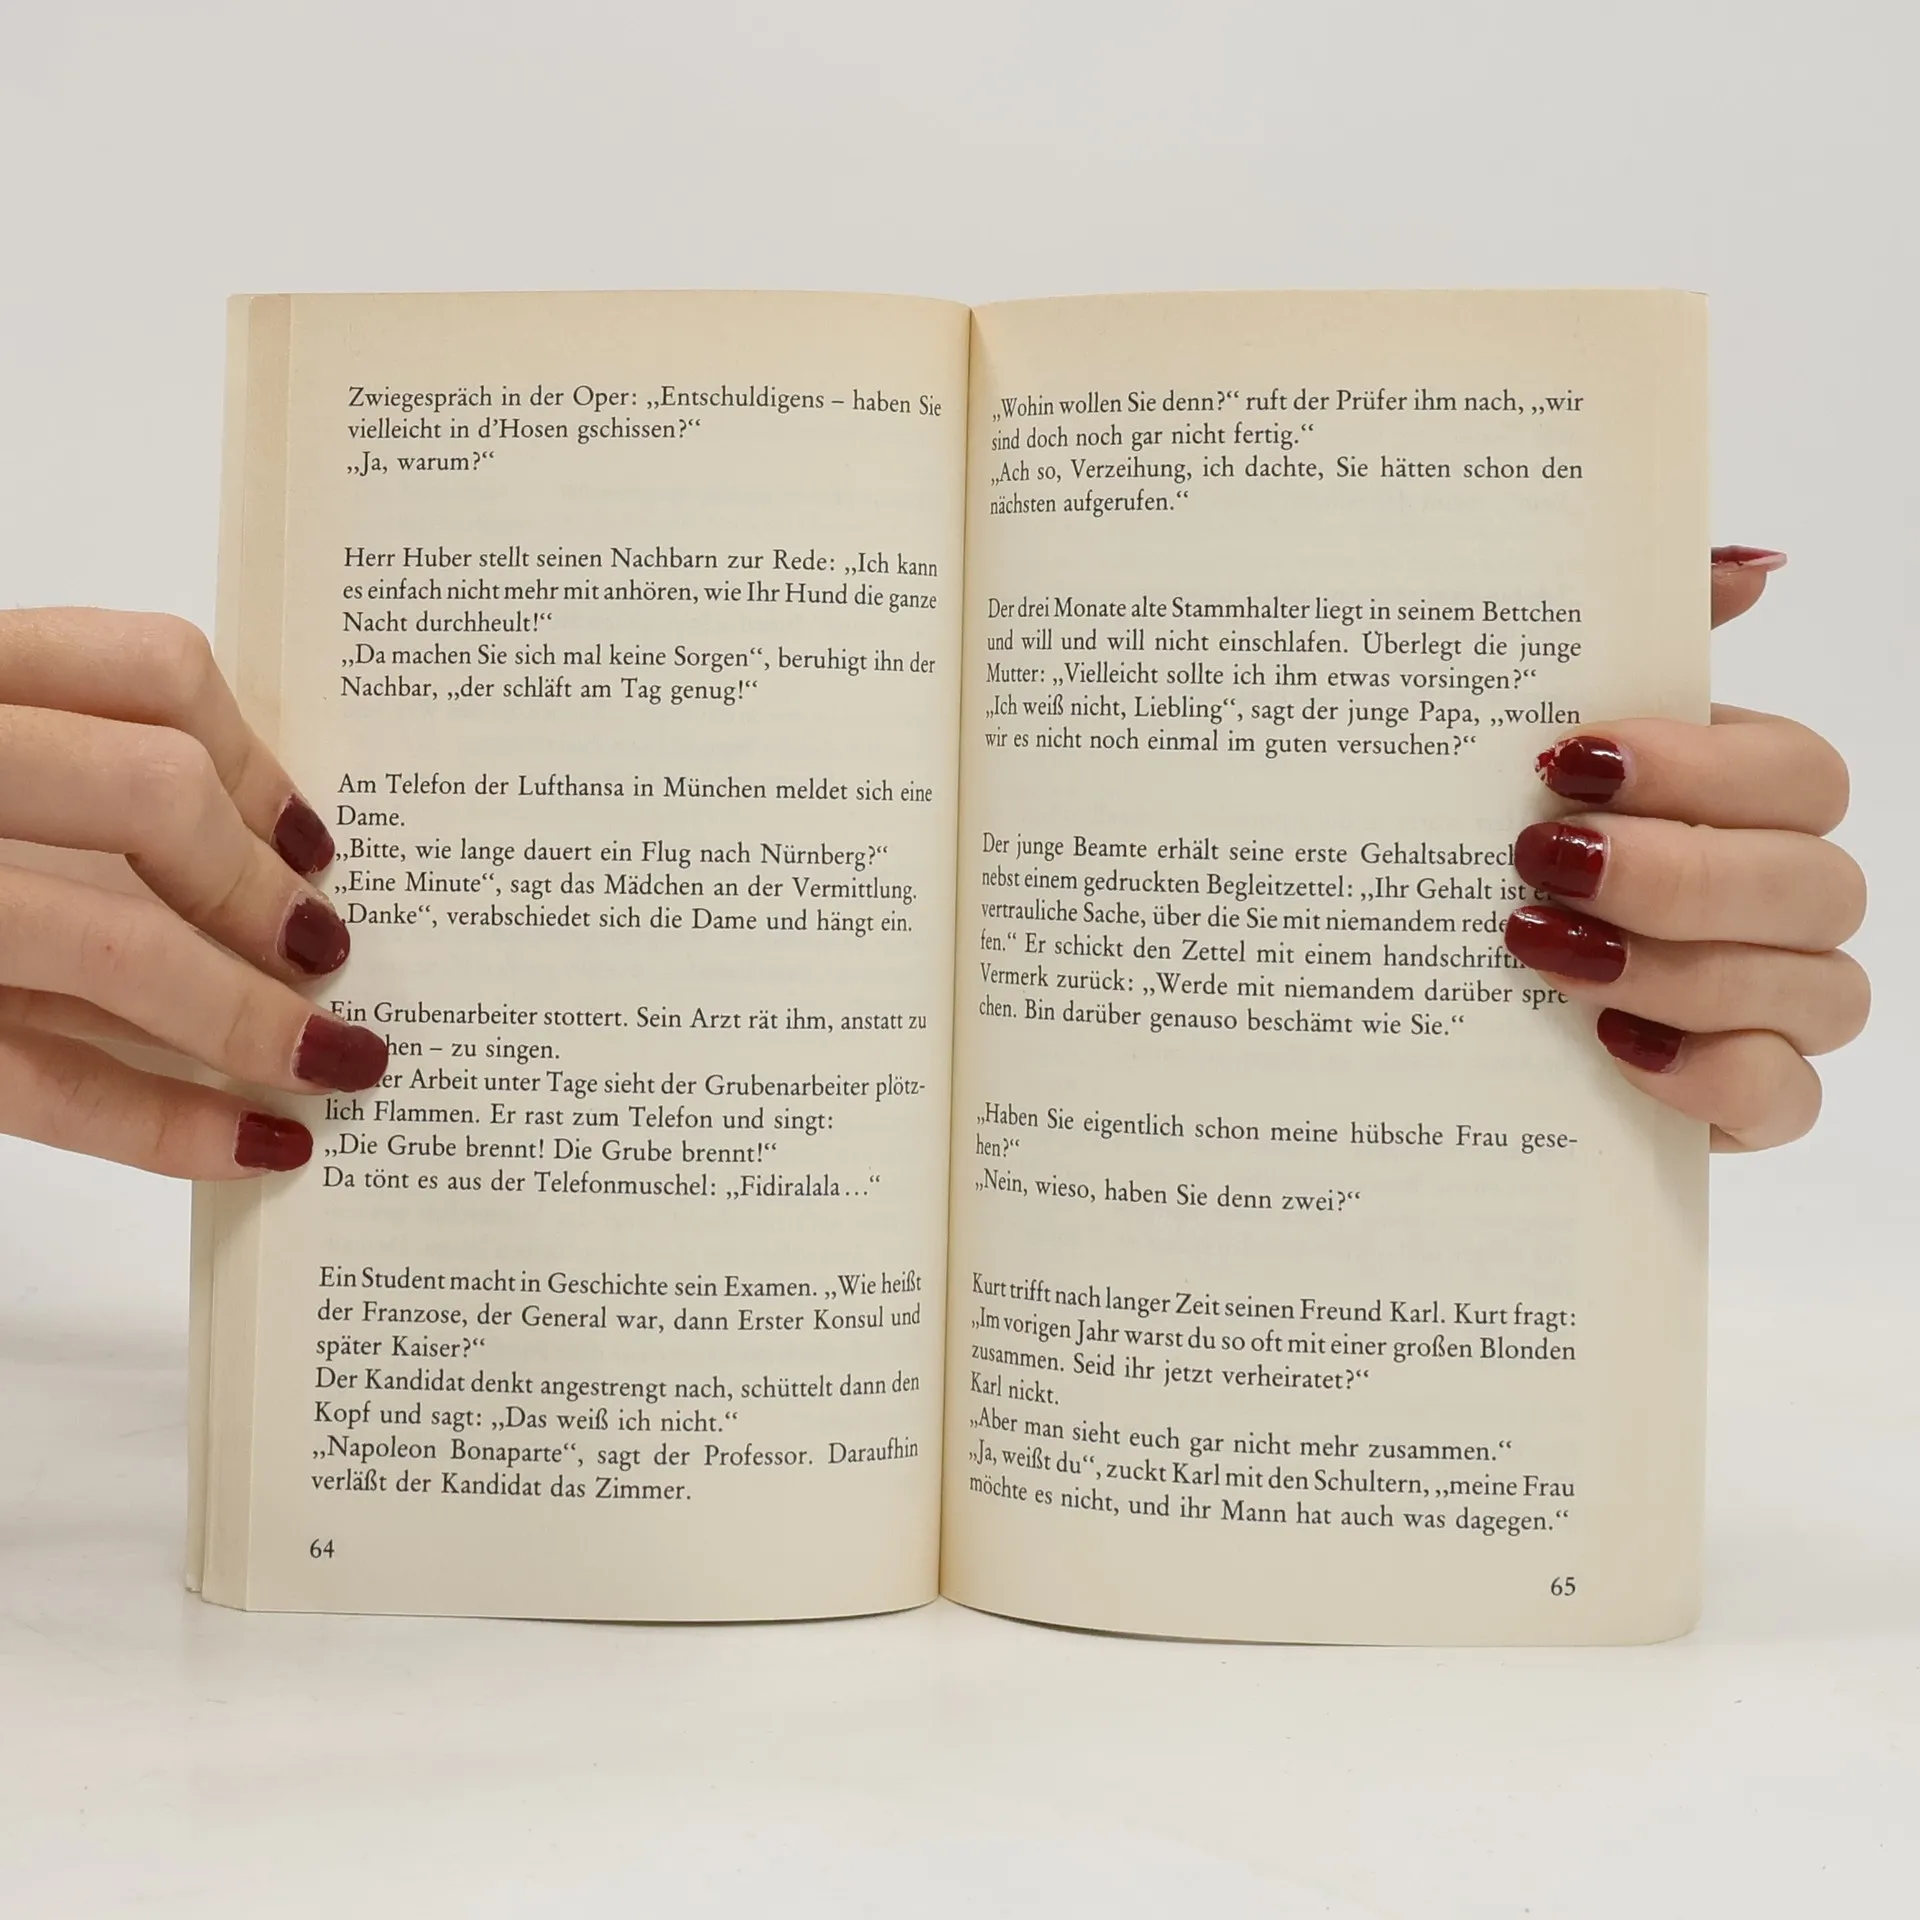 Zwiegespräch in der Oper: „Entschuldigens – haben Sie
vielleicht in d’Hosen gschissen?“
„Ja, warum?“
Herr Huber stellt seinen Nachbarn zur Rede: „Ich kann
es einfach nicht mehr mit anhören, wie Ihr Hund die ganze
Nacht durchheult!“
„Da machen Sie sich mal keine Sorgen“, beruhigt ihn der
Nachbar, „der schläft am Tag genug!“
Am Telefon der Lufthansa in München meldet sich eine
Dame.
„Bitte, wie lange dauert ein Flug nach Nürnberg?“
„Eine Minute“, sagt das Mädchen an der Vermittlung.
„Danke“, verabschiedet sich die Dame und hängt ein.
Ein Grubenarbeiter stottert. Sein Arzt rät ihm, anstatt zu
– zu singen.
Arbeit unter Tage sieht der Grubenarbeiter plötz-
lich Flammen. Er rast zum Telefon und singt:
„Die Grube brennt! Die Grube brennt!“
Da tönt es aus der Telefonmuschel: „Fidiralala...“
Ein Student macht in Geschichte sein Examen. „Wie heißt
der Franzose, der General war, dann Erster Konsul und
später Kaiser?“
Der Kandidat denkt angestrengt nach, schüttelt dann den
Kopf und sagt: „Das weiß ich nicht.“
„Napoleon Bonaparte“, sagt der Professor. Daraufhin
verläßt der Kandidat das Zimmer.
64
„Wohin wollen Sie denn?“ ruft der Prüfer ihm nach, „wir
sind doch noch gar nicht fertig.“
„Ach so, Verzeihung, ich dachte, Sie hätten schon den
nächsten aufgerufen.“
Der drei Monate alte Stammhalter liegt in seinem Bettchen
und will und will nicht einschlafen. Überlegt die junge
Mutter: „Vielleicht sollte ich ihm etwas vorsingen?“
„Ich weiß nicht, Liebling“, sagt der junge Papa, „wollen
wir es nicht noch einmal im guten versuchen?“
Der junge Beamte erhält seine erste
nebst einem gedruckten Begleitzettel: „Ihr Gehalt ist
vertrauliche Sache, über die Sie mit niemandem
fen.“ Er schickt den Zettel mit einem
Vermerk zurück: „Werde mit niemandem darüber spre
chen. Bin darüber genauso beschämt wie Sie.“
„Haben Sie eigentlich schon meine hübsche Frau gese-
hen?“
„Nein, wieso, haben Sie denn zwei?“
Kurt trifft nach langer Zeit seinen Freund Karl. Kurt fragt:
„Im vorigen Jahr warst du so oft mit einer großen Blonden
zusammen. Seid ihr jetzt verheiratet?“
Karl nickt.
„Aber man sieht euch gar nicht mehr zusammen.“
„Ja, weißt du“, zuckt Karl mit den Schultern, „meine Frau
möchte es nicht, und ihr Mann hat auch was dagegen.“
65